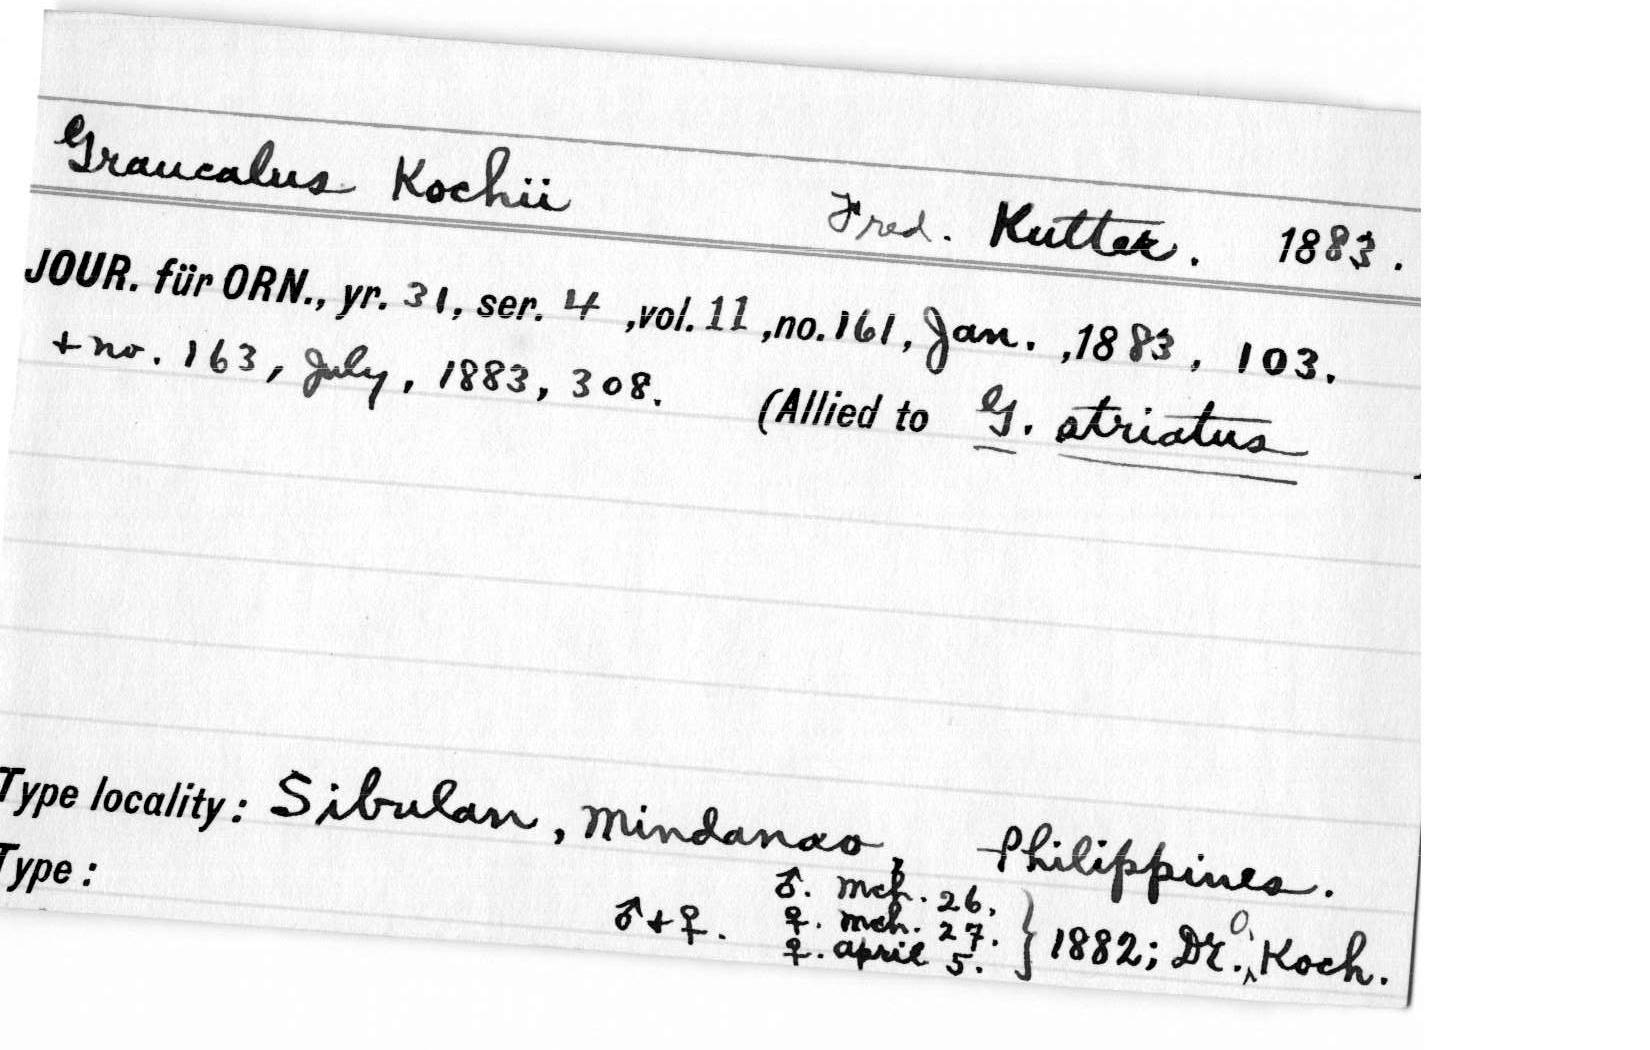 Graucalus Kochii Fred. Kutter. 1883.
JOUR. für ORN., yr. 31, ser. 4 ,vol. 11 ,no. 161, Jan. ,1883, 103.
+ no. 163, July, 1883, 308. (Allied to G. striatus
Type locality: Sibulan, Mindanao, Philippines.
Type:
♂ + ♀. ♂. mch. 26.
♀. mch. 27.
♀. april 5. } 1882; Dr. O. Koch.